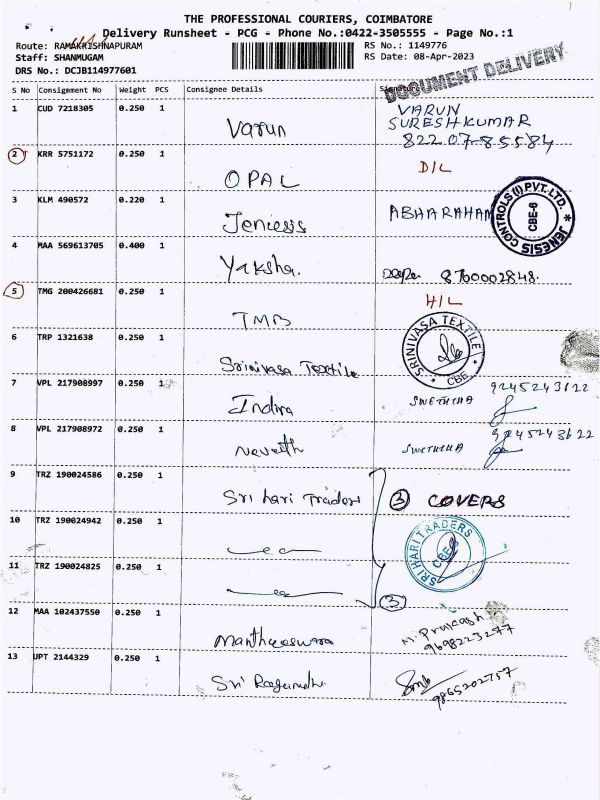 THE PROFESSIONAL COURIERS, COIMBATORE
Delivery Runsheet - PCG - Phone No.:0422-3505555 - Page No.:1
Route: RAMAKRISHNAPURAM RS No.: 1149776
Staff: SHANMUGAM RS Date: 08-Apr-2023
DRS No.: DCJB114977601
DOCUMENT DELIVERY
S No Consignment No Weight PCS Consignee Details Signature
1 CUD 7218305 0.250 1 Varun VARUN
SURESHKUMAR
82207-85584
2 KRR 5751172 0.250 1 OPAL D/L
3 KLM 490572 0.220 1 Jeniesis ABHARAHAM JENESIS CONTROLS (I) PVT. LTD. CBE-6
4 MAA 569613705 0.400 1 Yaksha. 8760002848.
5 TMG 200426681 0.250 1 TMB H/L
6 TRP 1321638 0.250 1 Srinivasa Textile SRINIVASA TEXTILE CBE
7 VPL 217908997 0.250 1 Indira SWETHHA 9245243622
8 VPL 217908972 0.250 1 SWETHHA 9245243622
9 TRZ 190024586 0.250 1 Sri hari Traders 3 COVERS
10 TRZ 190024942 0.250 1 SRI HARI TRADERS CBE-6
11 TRZ 190024825 0.250 1 3
12 MAA 102437550 0.250 1 M. Prakash
9698223277
13 UPT 2144329 0.250 1 9865202757